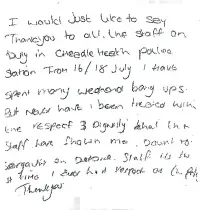 I would Just like to Sey
"Thankyou to all. the staff on
Duty in Cheadle Heath police
Station From 16/18 July I Have
spent many weekend bang ups.
But never have i been treated with
the respect & Dignity that the
Staff have Shown me. Down to
Seargants on Staff its the
1st time I Ever had respect as
Thankyou